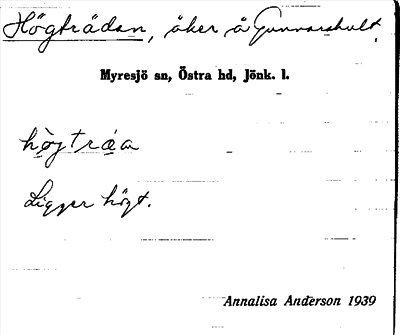 Högträdan, åker å Gunnarshult.
Myresjö sn, Östra hd, Jönk. l.
hö̀gtráa
Ligger högt.
Annalisa Anderson 1939